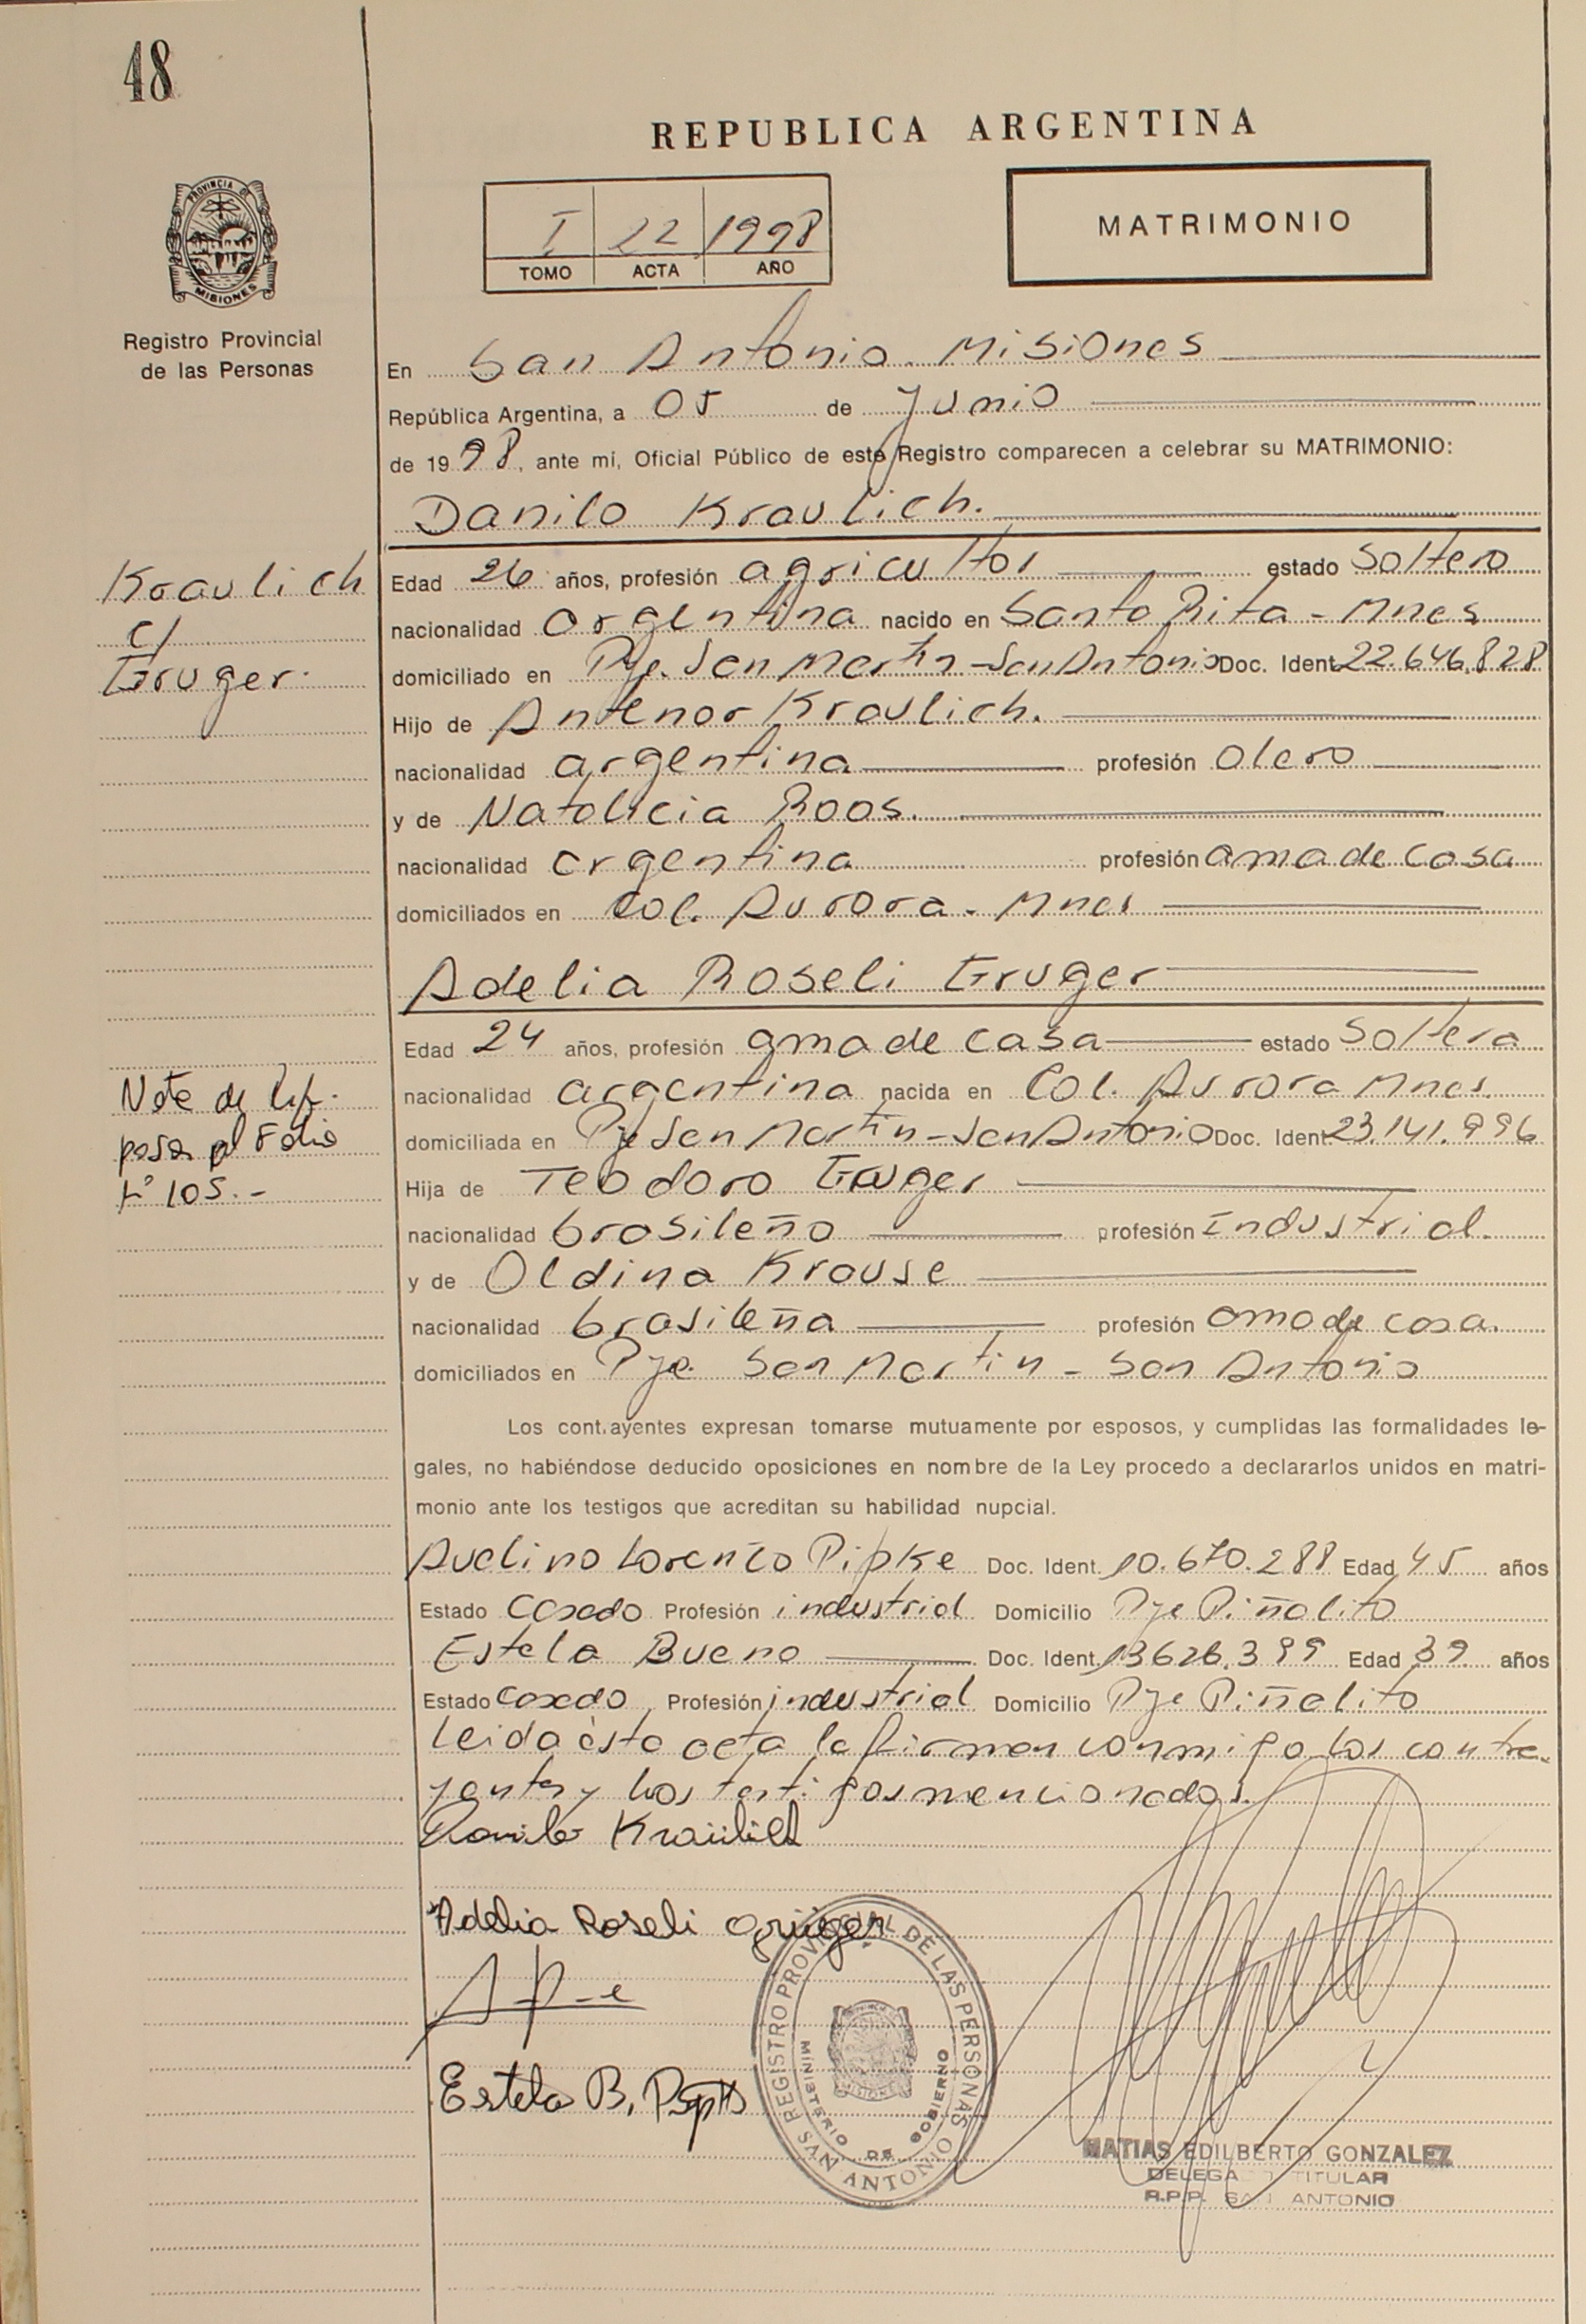 48
REPUBLICA ARGENTINA
PROVINCIA DE
MISIONES
I 22 1998
TOMO ACTA AÑO
MATRIMONIO
Registro Provincial
de las Personas
En San Antonio. Misiones
República Argentina, a 05 de Junio
de 1998, ante mi, Oficial Público de este Registro comparecen a celebrar su MATRIMONIO:
Danilo Kraulich.
Kraulich
c/
Gruger.
Edad 26 años, profesión agricultor estado Soltero
nacionalidad argentina nacido en Santa Rita - Mnes
domiciliado en Pje. San Martin - San Antonio Doc. Ident 22.646.828
Hijo de Antenor Kraulich.
nacionalidad argentina profesión Olero
y de Natalicia Roos.
nacionalidad argentina profesión ama de casa
domiciliados en Col. Aurora - Mnes
Adelia Roseli Gruger
Edad 24 años, profesión ama de casa estado Soltera
nacionalidad argentina nacida en Col. Aurora Mnes.
domiciliada en Pje San Martin - San Antonio Doc. Ident 23.141.996
Hija de Teodoro Gruger
nacionalidad brasileño profesión Industrial.
y de Oldina Krause
nacionalidad brasileña profesión ama de casa.
domiciliados en Pje. San Martin - San Antonio
Nota de
pasa al Folio
Nº 105.-
Los cont.ayentes expresan tomarse mutuamente por esposos, y cumplidas las formalidades le-
gales, no habiéndose deducido oposiciones en nombre de la Ley procedo a declararlos unidos en matri-
monio ante los testigos que acreditan su habilidad nupcial.
Avelino Lorenzo Pipke Doc. Ident. 10.670.288 Edad 45 años
Estado Casado Profesión industrial Domicilio Pje Piñalito
Estela Bueno Doc. Ident. 13626.399 Edad 39 años
Estado Casado Profesión industrial Domicilio Pje Piñalito
Leida ésta acta la firman conmigo los contra-
yentes y los testigos mencionados.
Danilo Kraülich
Adelia Roseli Grüger
Estela B.
REGISTRO PROVINCIAL DE LAS PERSONAS
MINISTERIO DE GOBIERNO
SAN ANTONIO
MISIONES
MATIAS EDILBERTO GONZALEZ
DELEGA TITULAR
R.P.P. SAN ANTONIO